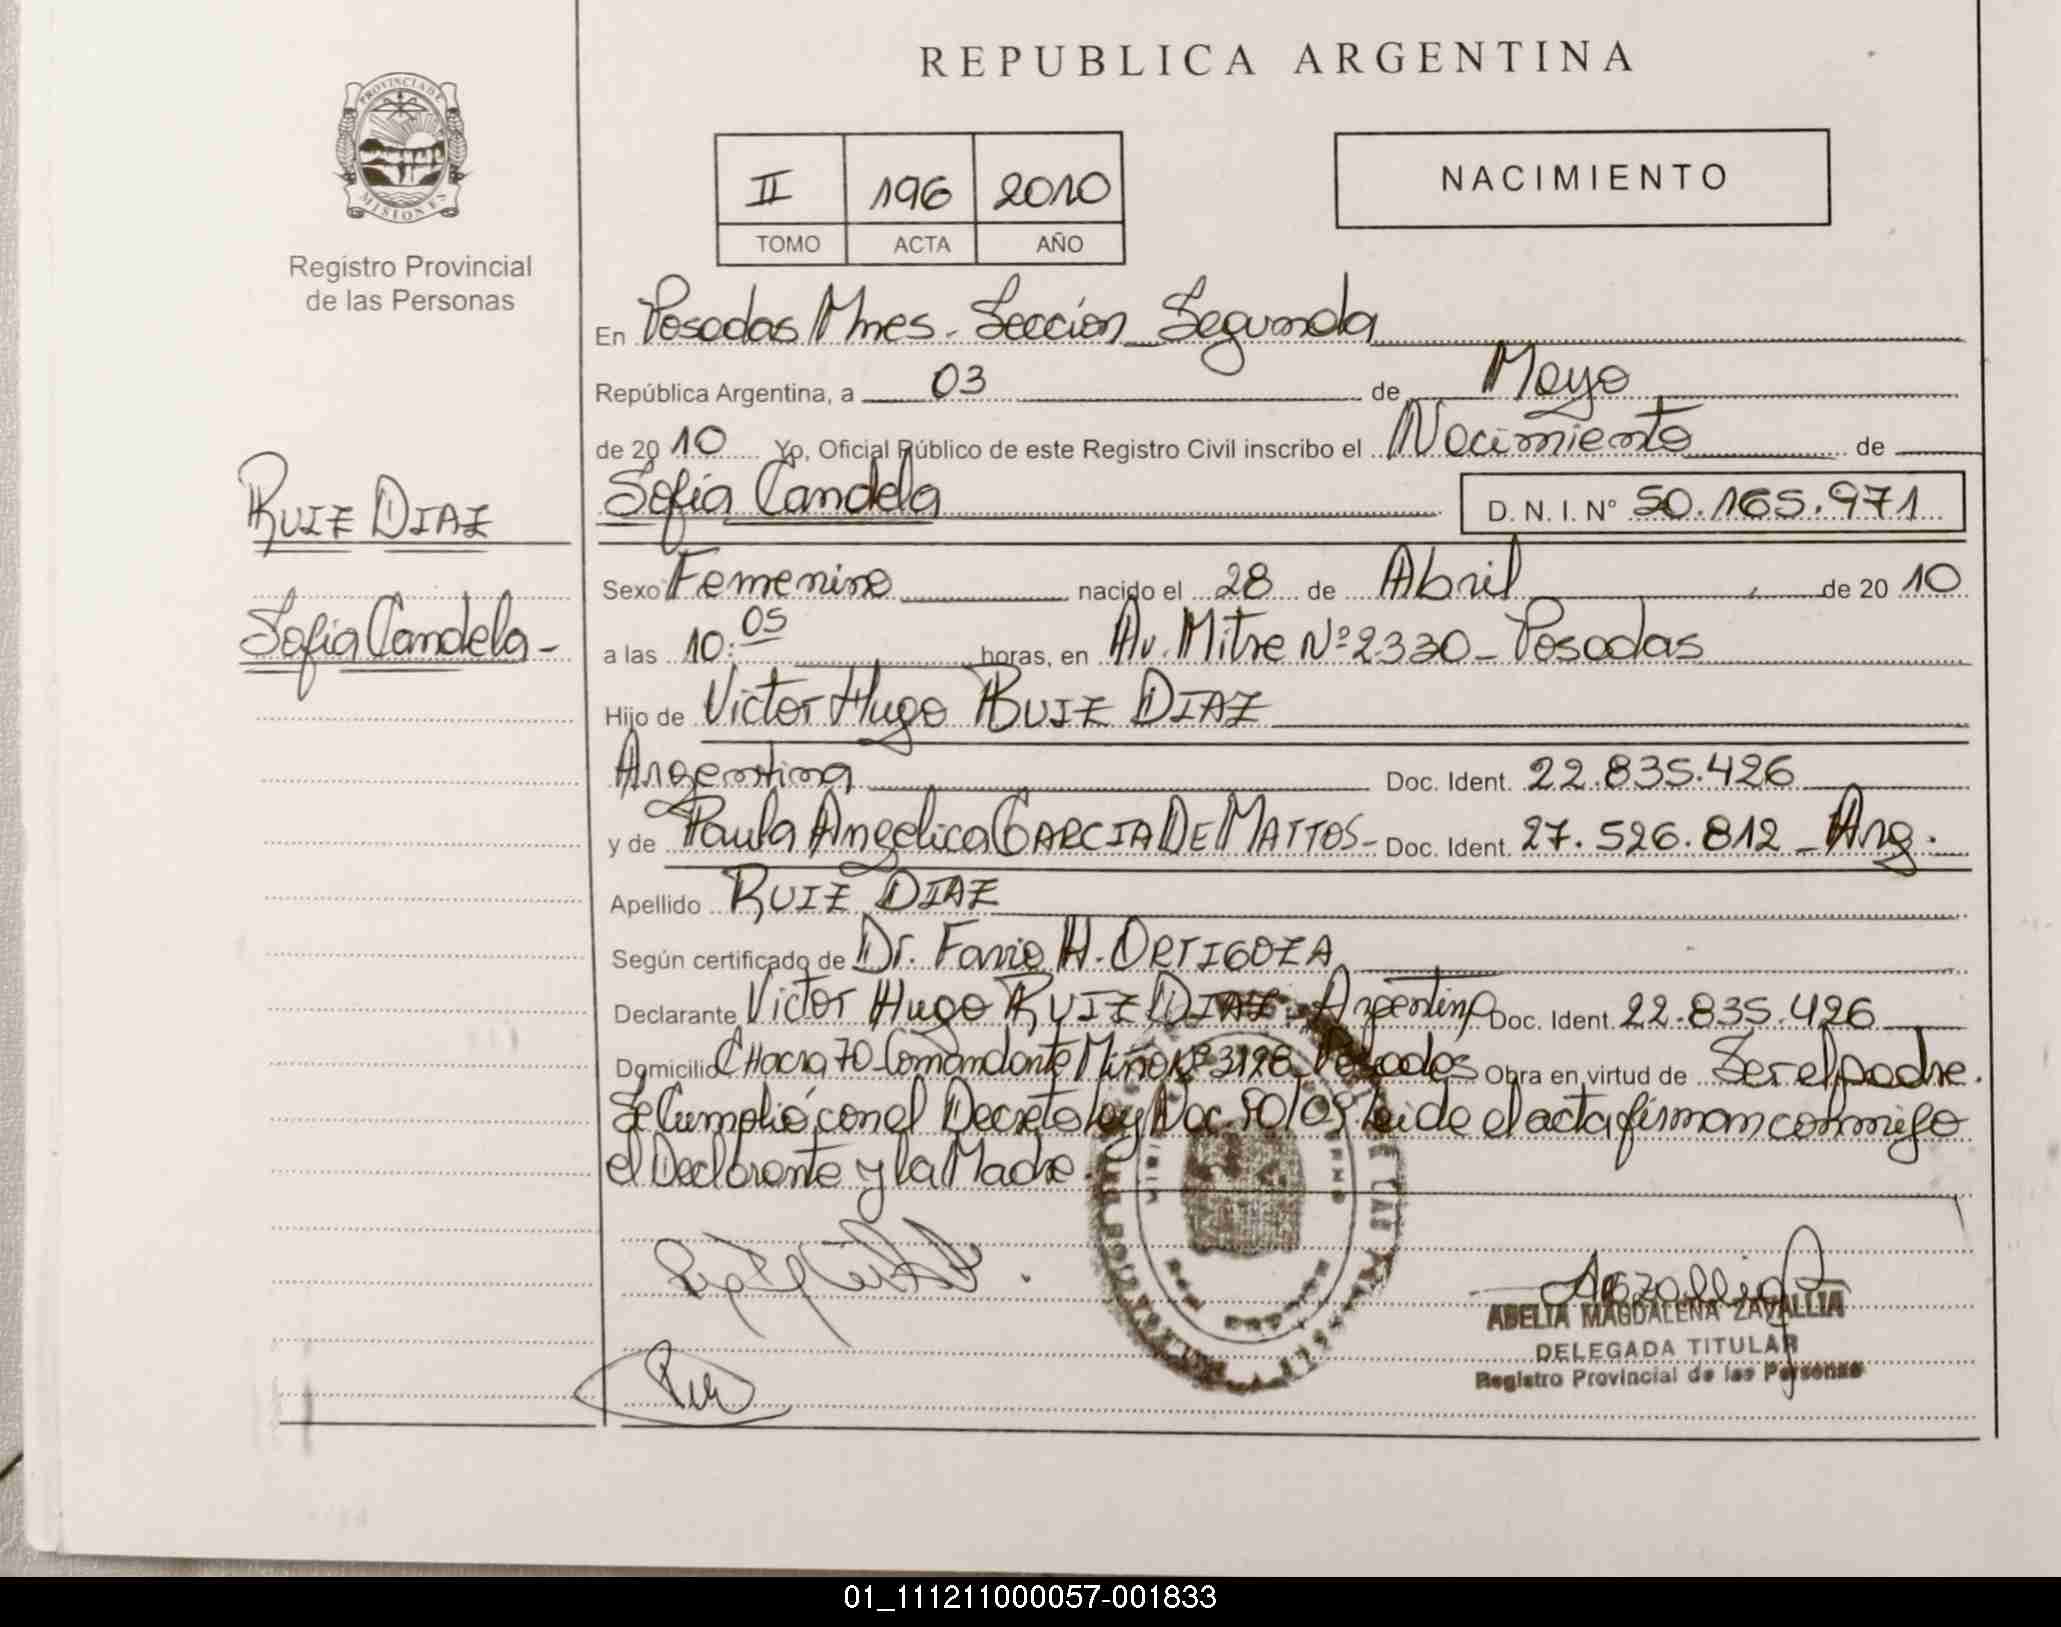 REPUBLICA ARGENTINA
PROVINCIA DE
MISIONES
Registro Provincial
de las Personas
II 196 2010
TOMO ACTA AÑO
NACIMIENTO
En Posadas Mnes. Sección Segunda
República Argentina, a 03 de Mayo
de 2010 Yo, Oficial Público de este Registro Civil inscribo el Nacimiento de
RUIZ DIAZ
Sofia Candela-
Sofia Candela D.N.I. N° 50.165.971
Sexo Femenino nacido el 28 de Abril de 2010
a las 10:05 horas, en Av. Mitre Nº 2330 - Posadas
Hijo de Victor Hugo RUIZ DIAZ
Argentina Doc. Ident. 22.835.426
y de Paula Angelica GARCIA DE MATTOS - Doc. Ident. 27.526.812 - Arg.
Apellido RUIZ DIAZ
Según certificado de Dr. Fanio H. ORTIGOZA
Declarante Victor Hugo RUIZ DIAZ. Argentino Doc. Ident. 22.835.426
Domicilio CHacra 70 - Comandante Miño Nº 3198 Posadas Obra en virtud de Ser el padre.
Se Cumplió con el Decreto Ley Leida el acta firman conmigo
el Declarante y la Madre.
ABELIA MAGDALENA ZAVALLIA
DELEGADA TITULAR
Registro Provincial de las Personas
01_111211000057-001833